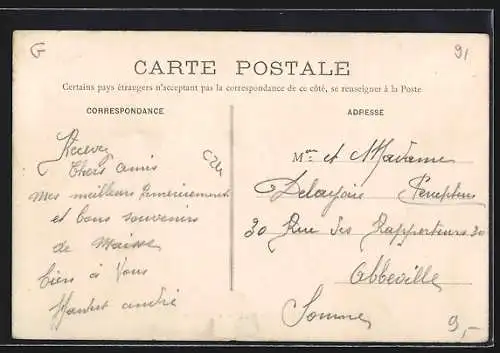 G
91
CARTE POSTALE
Certains pays étrangers n'acceptant pas la correspondance de ce côté, se renseigner à la Poste
CORRESPONDANCE
Recevez
Chers amis
mes meilleurs remerciements
et bons souvenirs
de Maisse
bien à Vous
andré
C24
ADRESSE
Mr et Madame
30 Rue des Rapporteurs 30
Abbeville
Somme
9,-